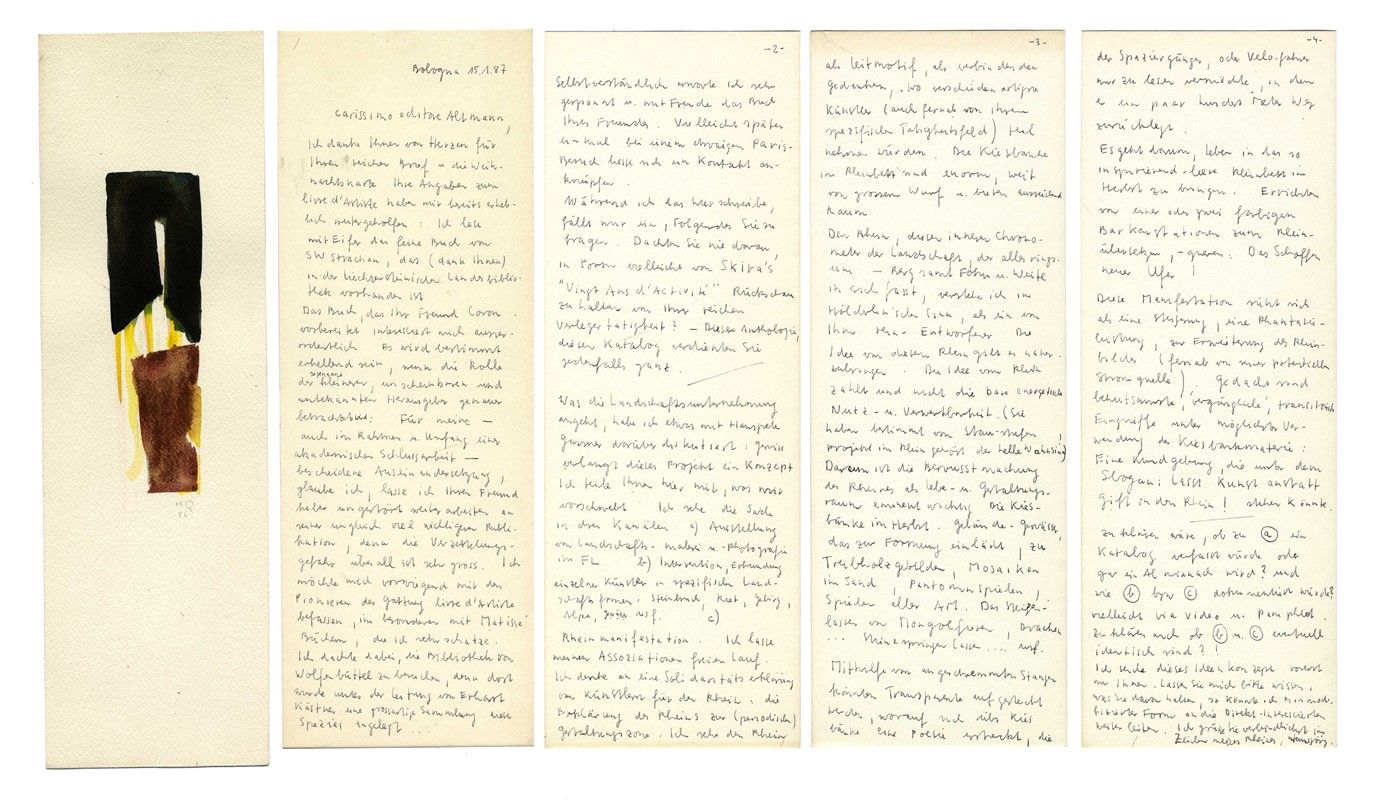 Bologna 15.1.87
carissimo editore Altmann,
Ich danke Ihnen von Herzen für
Ihren reichen Brief u. die Weih-
nachtskarte Ihre Angaben zum
livre d'Artiste haben mir bereits erheb-
lich weitergeholfen : Ich lese
mit Eifer das feine Buch von
SW Strachan, das (dank Ihnen)
in der Liechtensteinischen Landesbiblio-
thek vorhanden ist
Das Buch, das Ihr Freund Coron
vorbereitet interessiert mich ausser-
ordentlich Es wird bestimmt
erhellend sein, wenn die Rolle
der sogenannt kleineren, unscheinbaren und
unbekannten Herausgeber genauer
betrachtet Für meine —
auch im Rahmen u Umfang einer
akademischen Schlussarbeit —
bescheidene Auseinandersetzung,
glaube ich, lasse ich Ihren Freund
lieber ungestört weiter arbeiten an
seiner ungleich viel wichtigeren Publi-
kation, denn die Verzettelungs-
gefahr überall ist sehr gross. Ich
möchte mich vorwiegend mit den
Pionieren der Gattung livre d'Artiste
befassen, im besonderen mit Matisse'
Büchern, die ich sehr schätze.
Ich dachte dabei, die Bibliothek von
Wolfenbüttel zu besuchen, denn dort
wurde unter der Leitung von Erhart
Kästner eine grossartige Sammlung
Spezies angelegt ..
-2-
Selbstverständlich erwarte ich sehr
gespannt u. mit Freude das Buch
Ihres Freundes. Vielleicht später
einmal bei einem etwaigen Paris-
Besuch liesse sich ein Kontakt an-
knüpfen .
Während ich das hier schreibe,
fällt mir ein, Folgendes Sie zu
fragen. Dachten Sie nie daran,
in Form vielleicht von Skira's
"Vingt Ans d'Activité" Rückschau
zu halten von Ihrer reichen
Verlegertätigkeit? – Diese Anthologie,
diesen Katalog verdienten Sie
jedenfalls ganz.
Was die Landschaftsunternehmung
angeht, habe ich etwas mit Hanspeter
Gassner darüber diskutiert : gewiss
verlangt dieses Projekt ein Konzept
Ich teile Ihnen hier mit, was mir
vorschwebt Ich sehe die Sache
in drei Kanälen a) Ausstellung
von Landschafts- malerei u -photografie
im FL b) Intervention, Erkundung
einzelner Künstler in spezifischen Land-
schaftsformen : Steinbruch, Riet, Gebirg,
Alpe, usf. c)
Rheinmanifestation . Ich lasse
meinen Assoziationen freien Lauf.
Ich denke an eine Solidaritätserklärung
von Künstlern für den Rhein : die
Erklärung des Rheins zur (periodischen)
gestaltungszone. Ich sehe den Rhein
-3-
als leitmotif, als verbindenden
Gedanken, wo verschiedenartigste
Künstler (auch fernab von ihrem
spezifischen Tätigkeitsfeld) teil
nehmen würden. Die Kiesbänke
im Rheinbett sind enorm, weit
von grossem Wurf u. bieten ausreichend
Raum
Den Rhein, diesen inneren Chrono-
meter der Landschaft, der alles rings-
um — Berg samt Föhn u. Weite
in sich fasst, verstehe ich im
Hölderlin'schen Sinn, als ein von
Ihm rein - Entworfener Die
Idee von diesem Rhein gilt es näher-
zubringen. Die Idee vom Rhein
zählt und nicht die bare energetische
Nutz - u. Verwertbarkeit. (Sie
haben bestimmt vom Stau-stufen ,
projekt im Rhein gehört der helle Wahnsinn)
Darum ist die Bewusstmachung
des Rheines als lebe - u. Gestaltungs-
raum eminent wichtig Die Kies-
bänke im Herbst. gelände - gewisse,
das zur Formung einlädt, zu
Treibholzgebilden, Mosaiken
im Sand, Pantomimspielen,
Spielen aller Art. Das Steigen-
lassen von Mongolfieren, Drachen
... Steinespringen lassen .... usf.
Mithilfe von angeschwemmten Stangen
könnten Transparente aufgesteckt
werden, worauf sich übers Kies
bänke eine Poesie erstreckt, die
-4-
der Spaziergänger, oder Velo-fahrer
nur zu lesen vermöchte, in dem
er ein paar hundert Meter Weg
zurücklegt.
Es geht darum, leben in das so
inspirierend-leere Rheinbett im
Herbst zu bringen. Errichten
von einer oder zwei farbigen
Barkenstationen zum Rhein-
übersetzen, -queren. Das Schaffen
neuer Ufer !
Diese Manifestation sieht sich
als eine Steigerung, eine Phantasie-
leistung, zur Erweiterung des Rhein-
bildes (fernab von einer potentiellen
Stromquelle). Gedacht sind
behutsamste, 'vergängliche', transitorisch
Eingriffe unter möglichster Ver-
wendung der Kiesbankmaterie :
Eine Kundgebung, die unter dem
Slogan : Lasst Kunst anstatt
gift in den Rhein ! stehen könnte.
Zu klären wäre, ob zu (a) ein
Katalog verfasst würde oder
gar ein Almanach wird ? und
wie (b) bzw (c) dokumentiert würde?
vielleicht via Video u. Pamphlet.
Zu klären auch ob (b) u. (c) eventuell
identisch sind ? !
Ich sende dieses Ideenkonzept vorerst
nur Ihnen. Lassen Sie mich bitte wissen,
was Sie davon halten, so könnte ich es in modi-
fizierter Form an die Direkt-Interessierten
weiter leiten. Ich grüsse Sie verbindlichst im
Zeichen meines Rheines, Hansjörg.